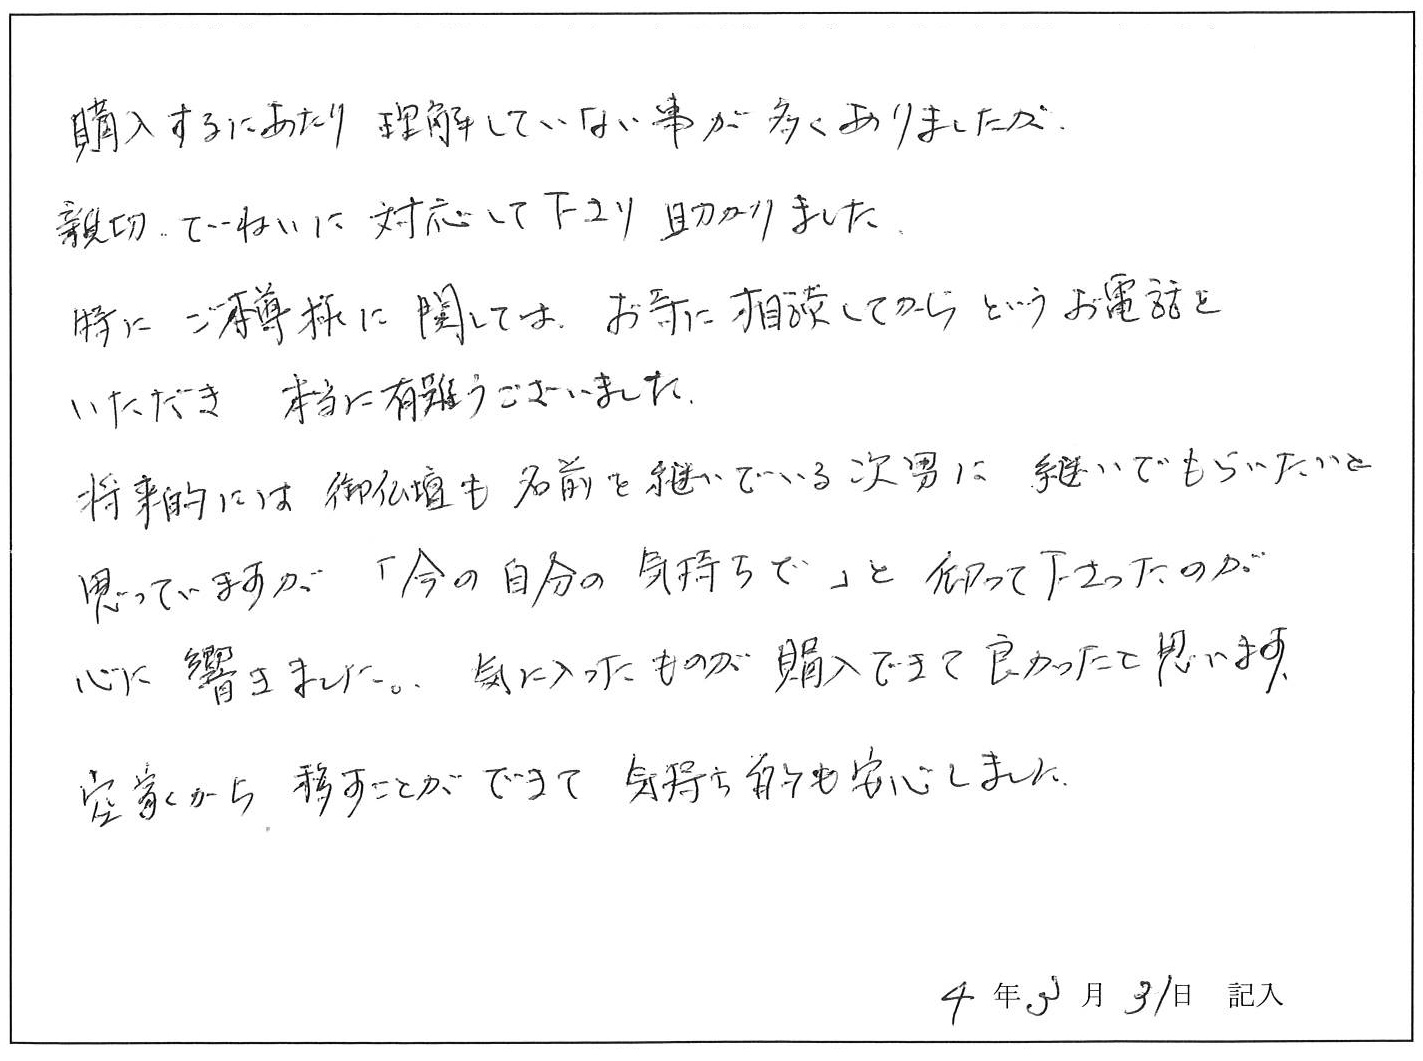 購入するにあたり 理解していない事が多くありましたが、
親切、ていねいに 対応して下さり 助かりました。
特に ご本尊様に関しては、お寺に相談してから というお電話を
いただき 本当に有難うございました。
将来的には 御仏壇も 名前を継いでいる次男に 継いでもらいたいと
思っていますが 「今の自分の気持ちで」と 仰って下さったのが
心に響きました。気に入ったものが 購入できて良かったと思います。
空家から 移すことができて 気持ち的も安心しました。
4 年 3 月 31日 記入